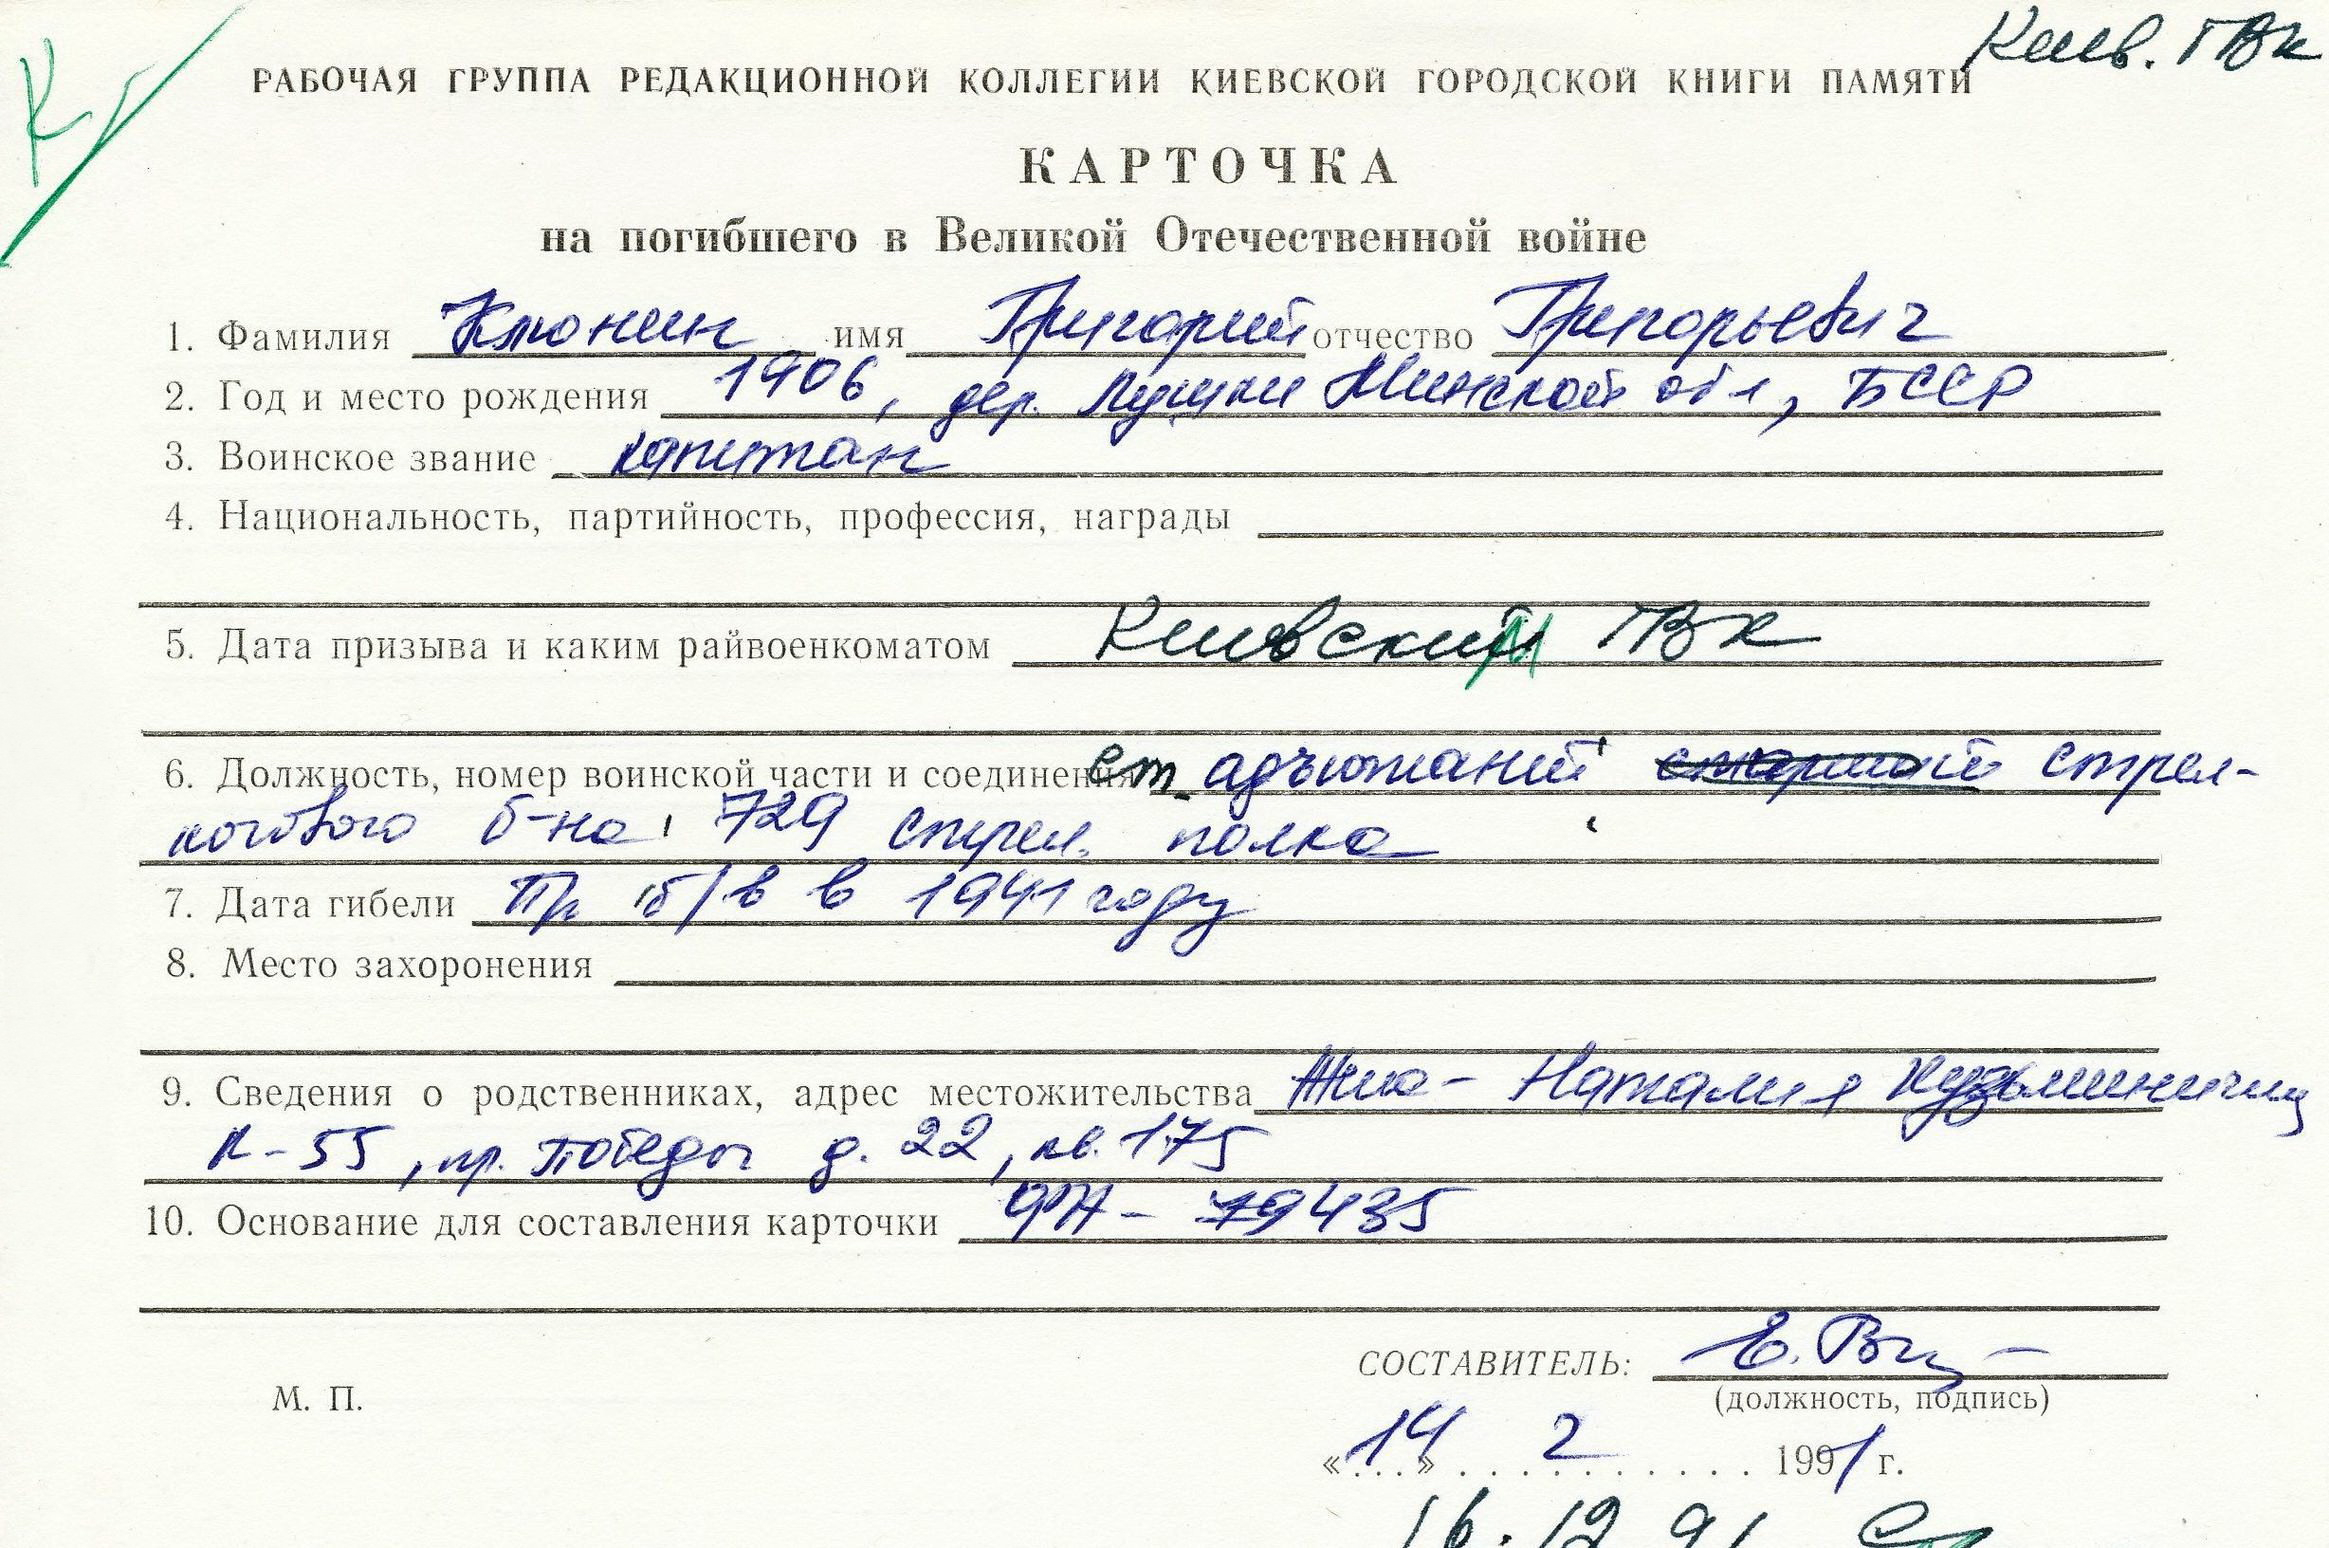 Киев. ГВК
РАБОЧАЯ ГРУППА РЕДАКЦИОННОЙ КОЛЛЕГИИ КИЕВСКОЙ ГОРОДСКОЙ КНИГИ ПАМЯТИ
КАРТОЧКА
на погибшего в Великой Отечественной войне
1. Фамилия Клюнин имя Григорий отчество Григорьевич
2. Год и место рождения 1906, дер. Минской обл, БССР
3. Воинское звание капитан
4. Национальность, партийность, профессия, награды
5. Дата призыва и каким райвоенкоматом Киевским ГВК
6. Должность, номер воинской части и соединения ст. адъютант стрел-
кового б-на 729 стрел. полка
7. Дата гибели Пр б/в в 1941 году
8. Место захоронения
9. Сведения о родственниках, адрес местожительства Наталия
К-55, пр. Победы д. 22, кв. 175
10. Основание для составления карточки 79435
СОСТАВИТЕЛЬ: Е.
(должность, подпись)
М. П.
«14» 2 1991 г.
16.12.91